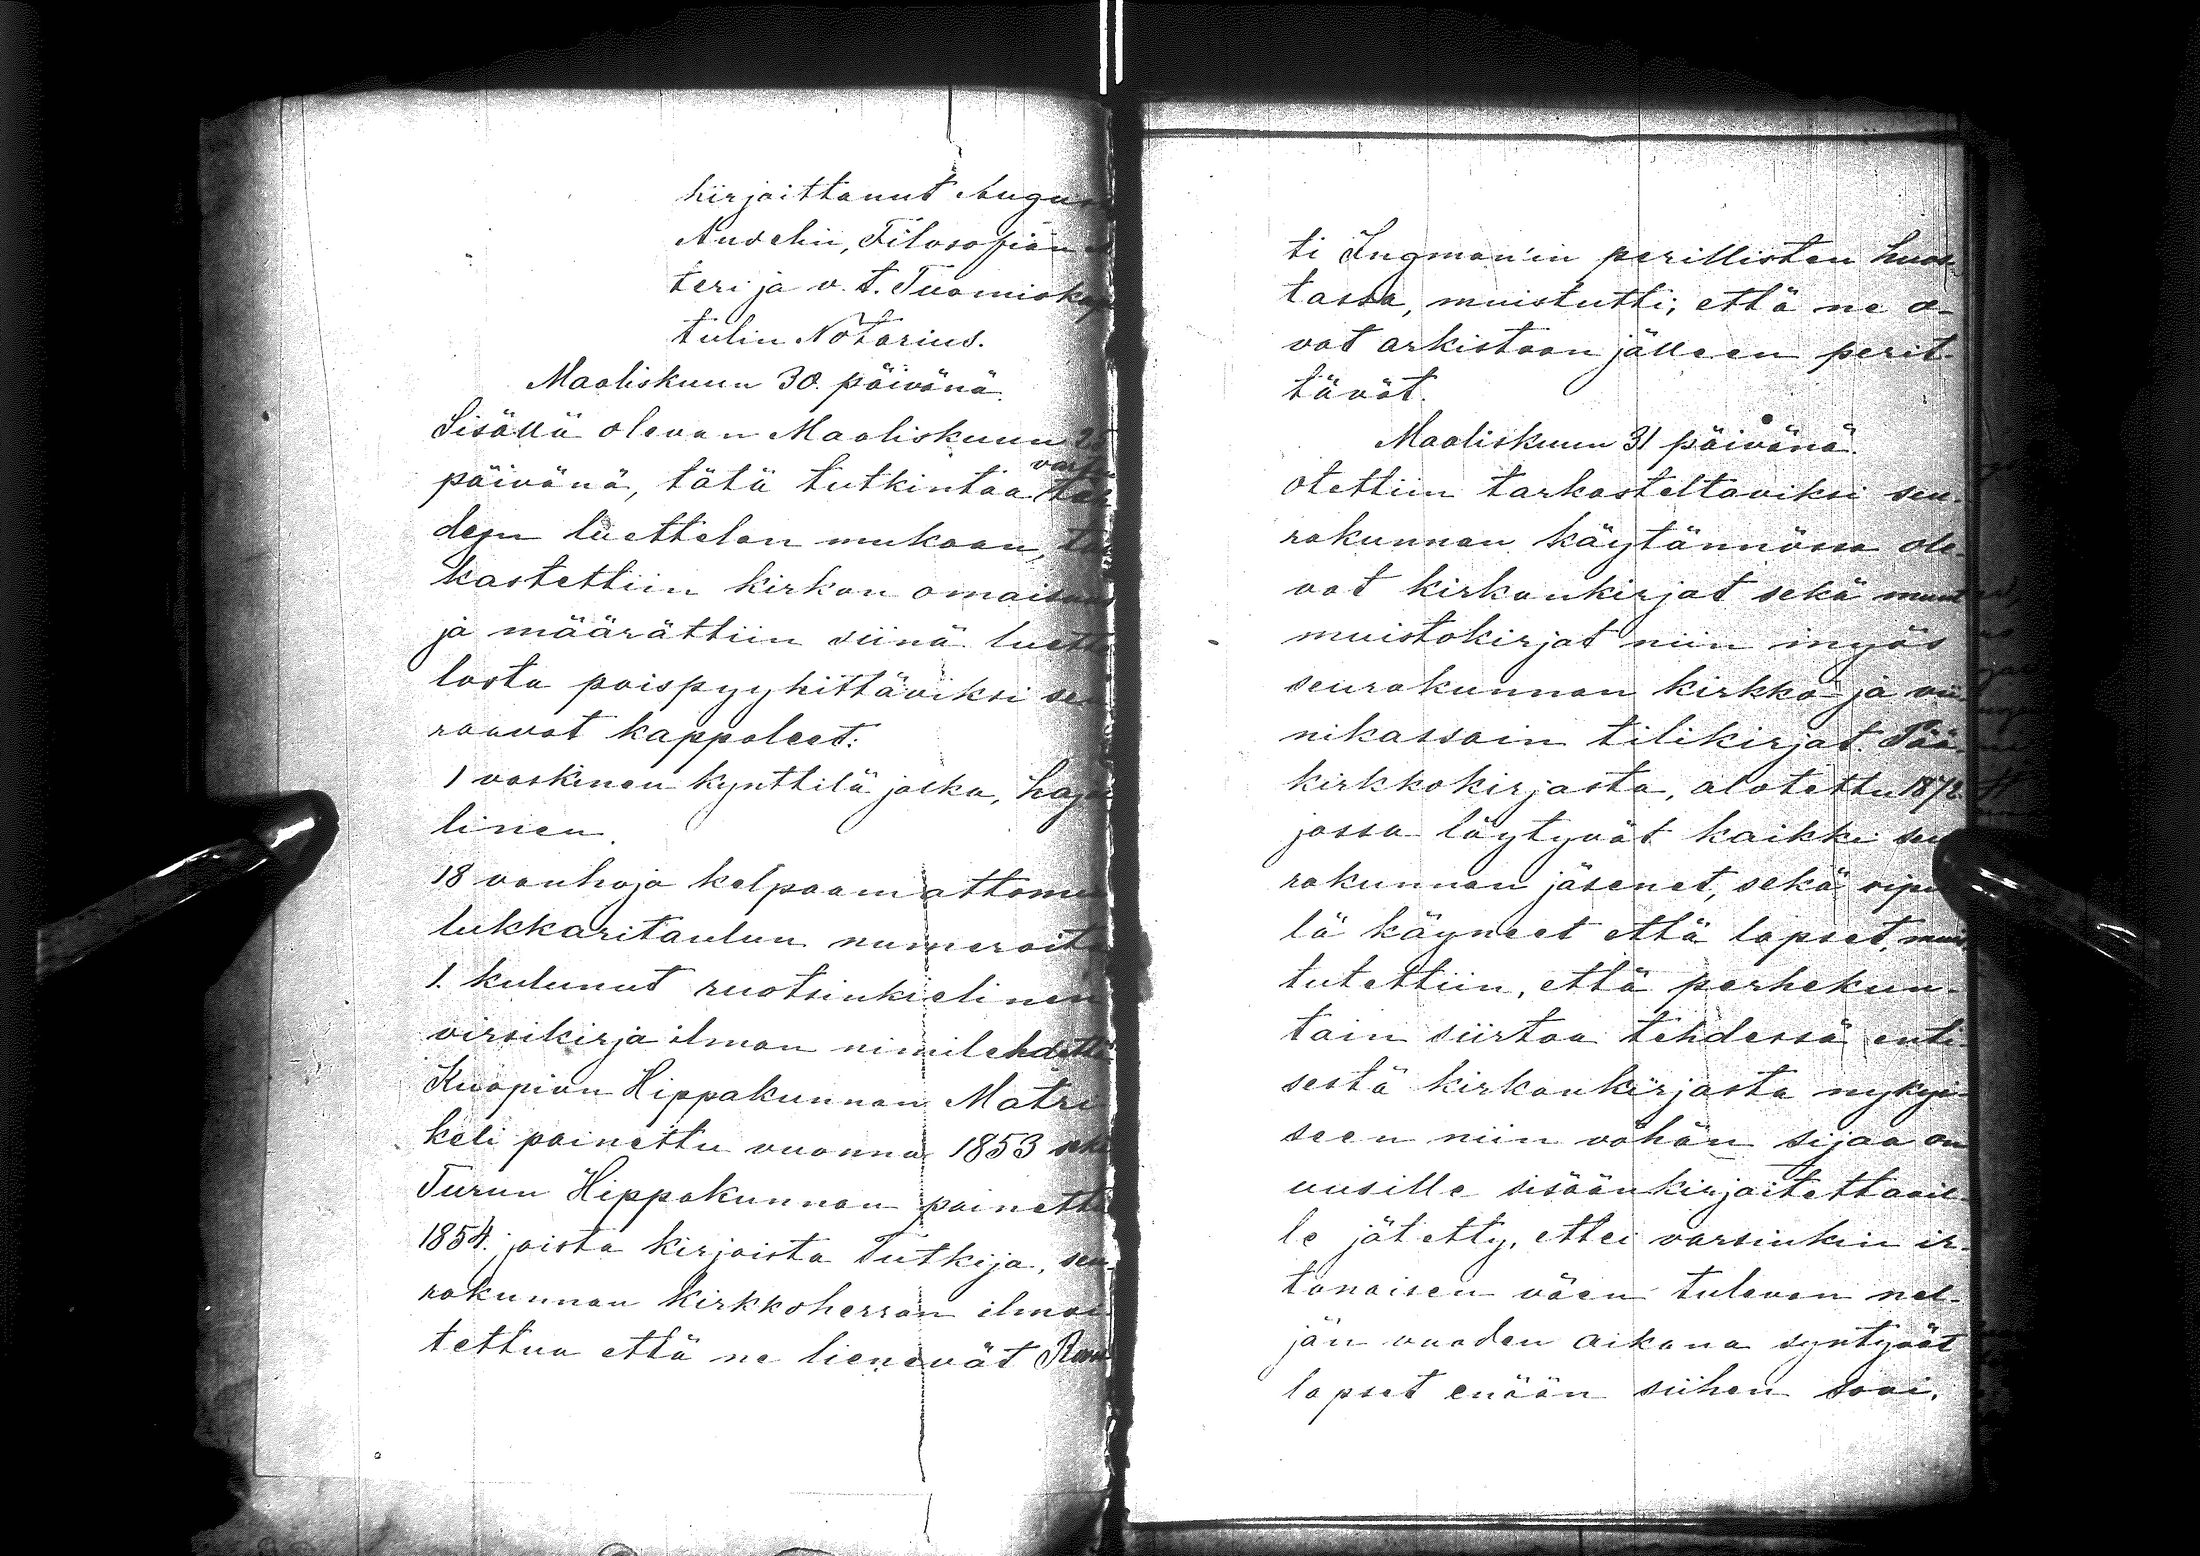 kirjoittanut Augus
Andelin, Filosofian
teri ja v. t. Tuomiokap
tulin Notarius.
Maaliskuun 30. päivänä.
Sisällä olevan Maaliskuun 25
päivänä, tätä tutkintaa varten
dejn luettelon mukaan,
kastettiin kirkon omaisuus
ja määrättiin siinä luette
losta poispyyhittäviksi seu
raavat kappaleet:
1 vaskinen kynttilä jalka, haja
linen.
18 vanhoja kelpaamattomia
lukkaritaulun numeroita
1. kulunut ruotsinkielinen
virsikirja ilman nimilehdettä
Kuopion Hippakunnan Matri
keli painettu vuonna 1853 sekä
Turun Hippakunnan painettu
1854. joista kirjoista Tutkija, seu-
rakunnan kirkkoherran ilmoi
tettua että ne lienevät Rova
ti Ingman'in perillisten huos-
tassa, muistutti; että ne o-
vat arkistoon jälleen perit-
tävät.
Maaliskuun 31 päivänä.
otettiin tarkasteltaviksi seu-
rakunnan käytännössä ole-
vat kirkonkirjat sekä muut
muistokirjat niin myös
seurakunnan kirkko- ja vii
nikassain tilikirjat. Pää-
kirkkokirjasta, alotettu 1872
jossa löytyvät kaikki seu
rakunnan jäsenet, sekä ripil
lä käyneet että lapset, muis
tutettiin, että perhekun-
tain siirtoa tehdessä enti-
sestä kirkonkirjasta nykyi-
seen niin vähän sijaa on
uusille sisäänkirjoitettavil-
le jätetty, ettei varsinkin ir-
tonaisen väen tulevan nel-
jän vuoden aikana syntyvät
lapset enään siihen sovi.